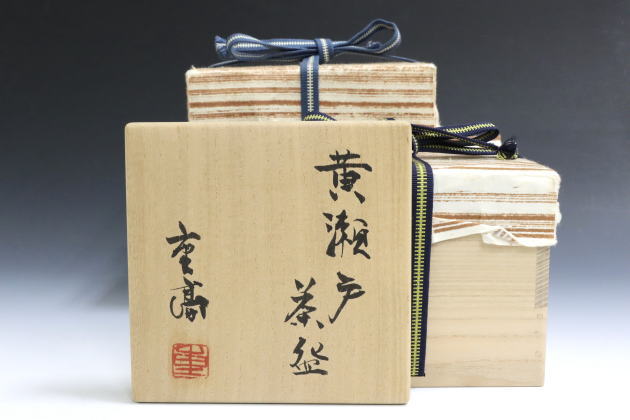 黄瀬戸
茶盌
重高